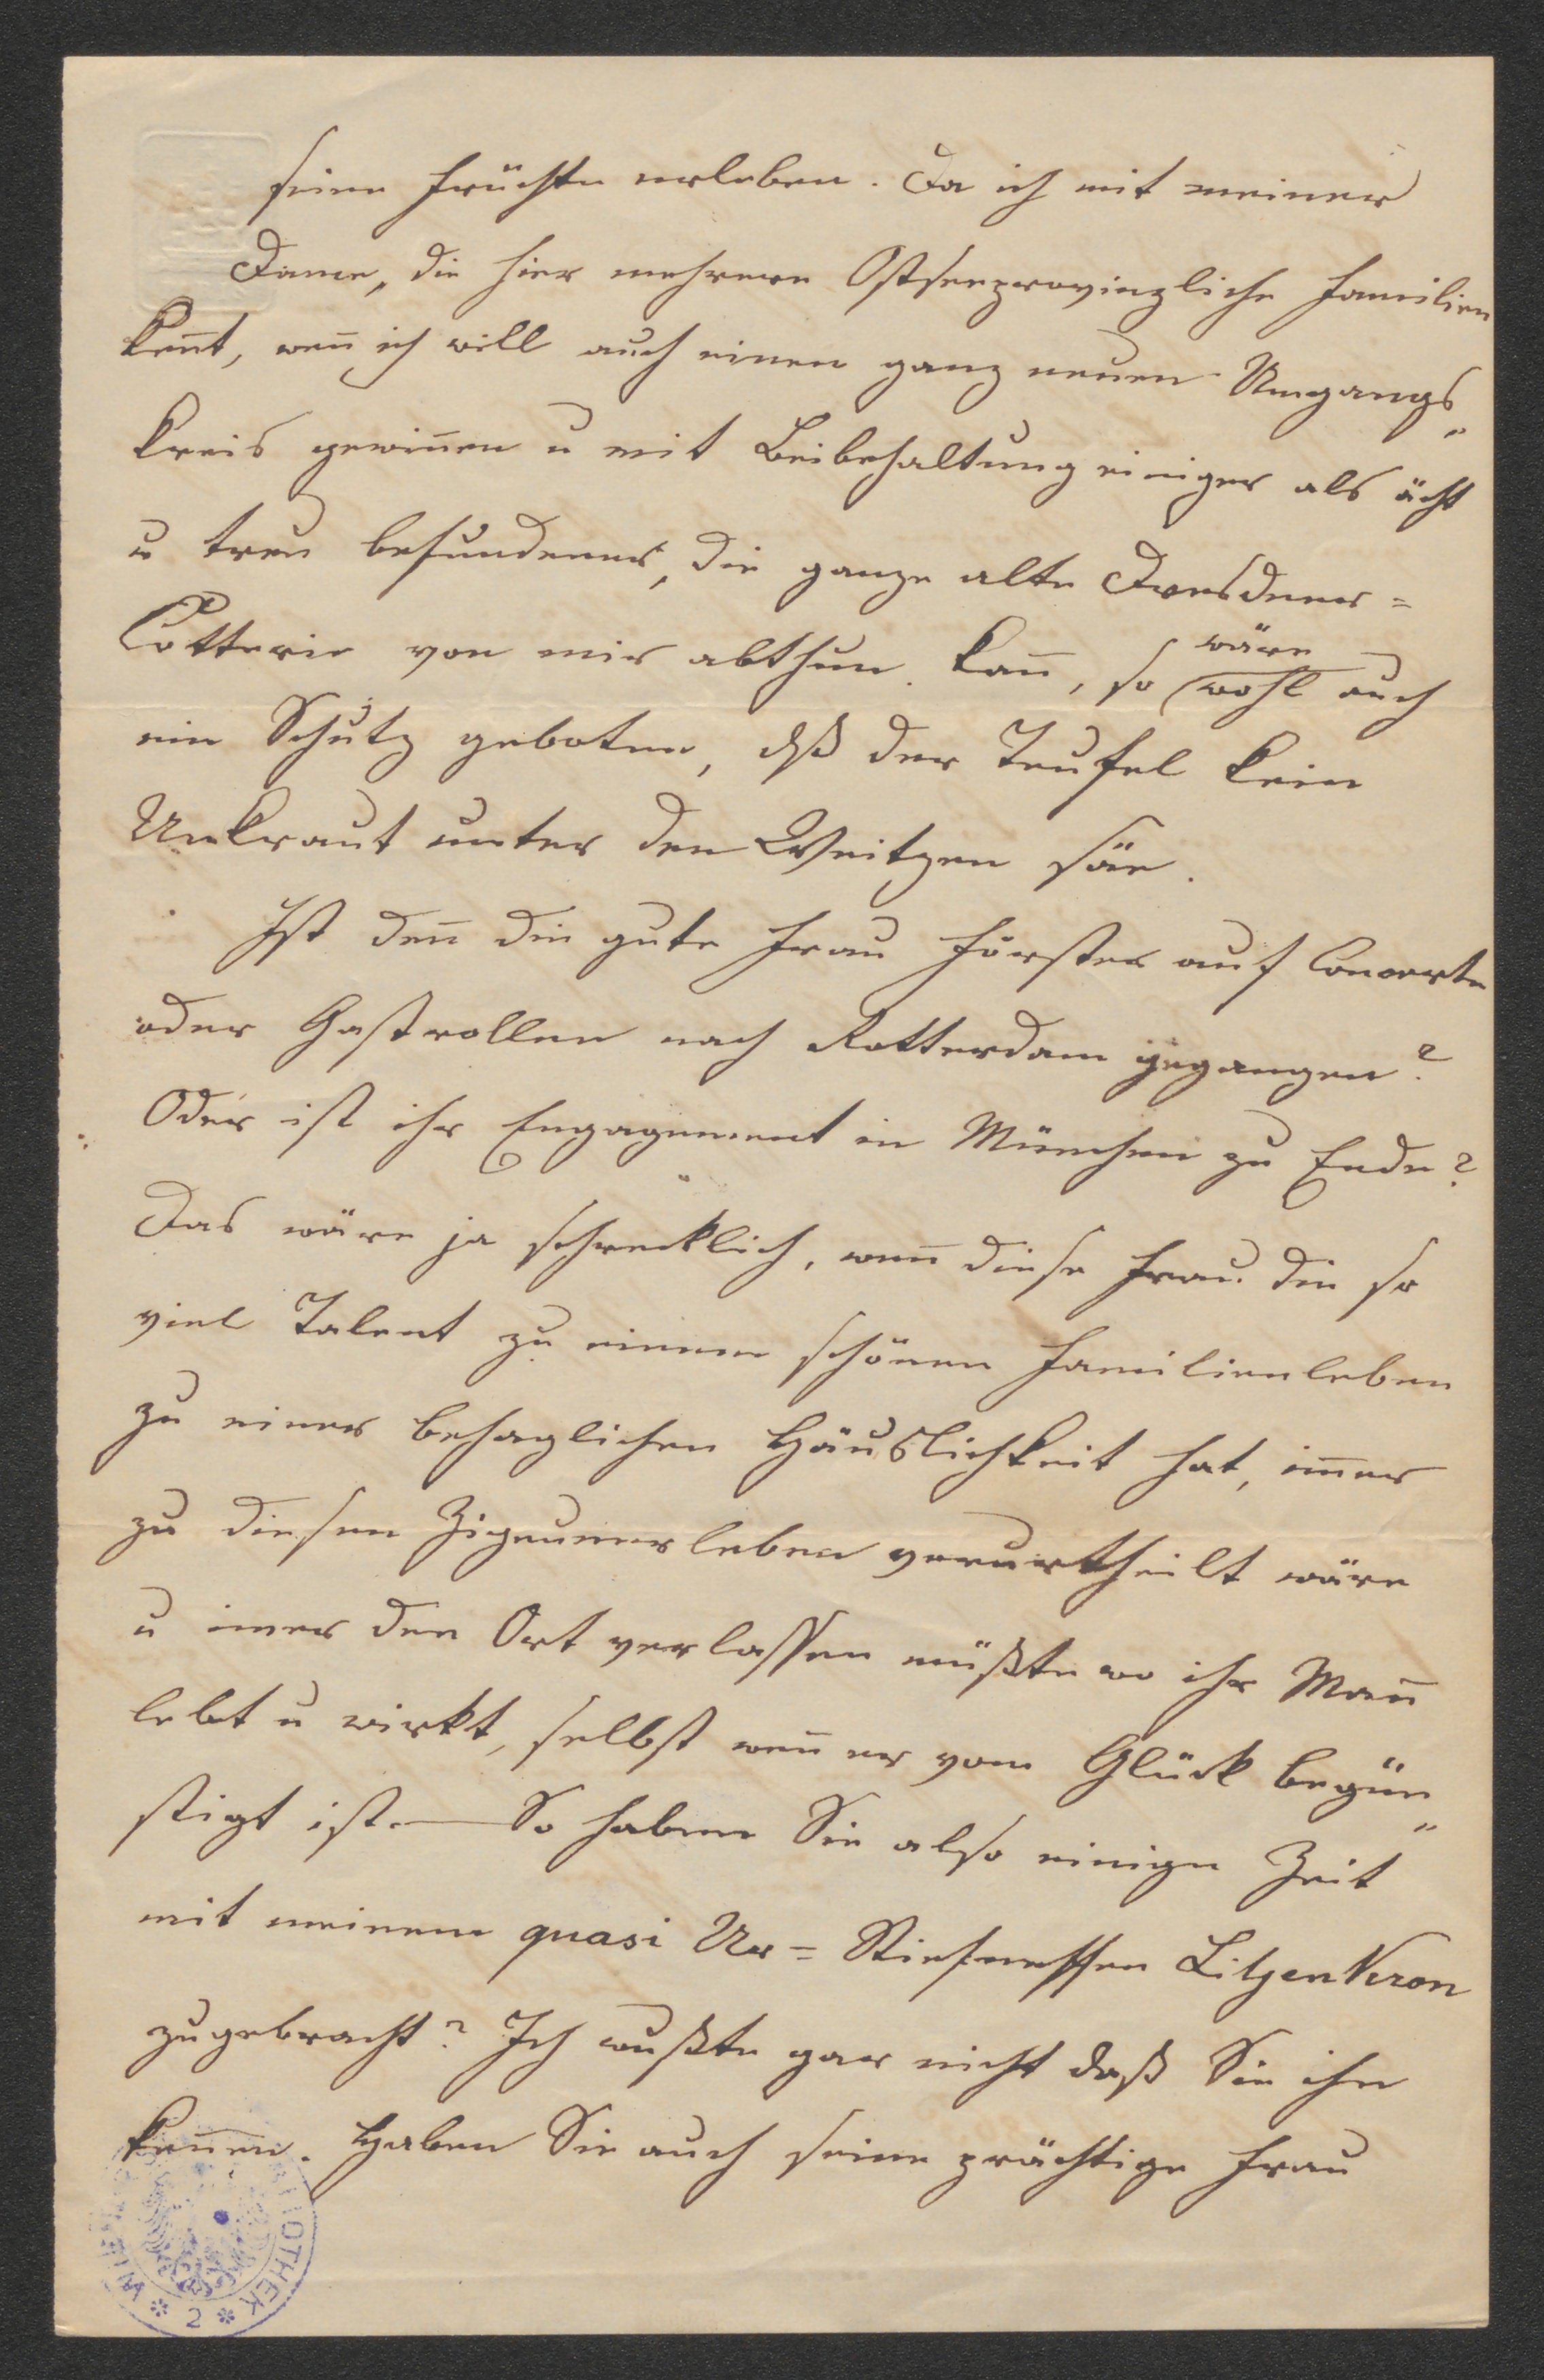 seine Früchte erleben. Da ich mit meiner
Dame, die hier mehrere Ostseeprovinzliche Familien
keñt, weñ ich will auch einen ganz neuen Umgangs„
kreis gewiñen u mit Beibehaltung einiger als ächt
u treu befundener, die ganze alte Dresdener=
Cotterie von mir abthun kañ, so wäre wohl auch
ein Schutz geboten, dß der Teufel kein
Unkraut unter den Weitzen säe.
Ist deñ die gute Frau Förster auf Concerte
oder Gastrollen nach Rotterdam gegangen?
Oder ist ihr Engagement in München zu Ende?
Das wäre ja schrecklich, weñ diese Frau die so
viel Talent zu einem schönen Familienleben
zu einer behaglichen Häuslichkeit hat, im̃er
zu diesem Zigeunerleben verurtheilt wäre
u im̃er den Ort verlassen müßte wo ihr Mañ
lebt u wirkt, selbst weñ er vom Glück begün„
stigt ist. — So haben Sie also einige Zeit
mit meinem quasi Ur= Stiefneffen Litzen Kron
zugebracht? Ich wußte gar nicht daß Sie ihn
keñen. Haben Sie auch seine prächtige Frau
BIBLIOTHEK
* 2 *